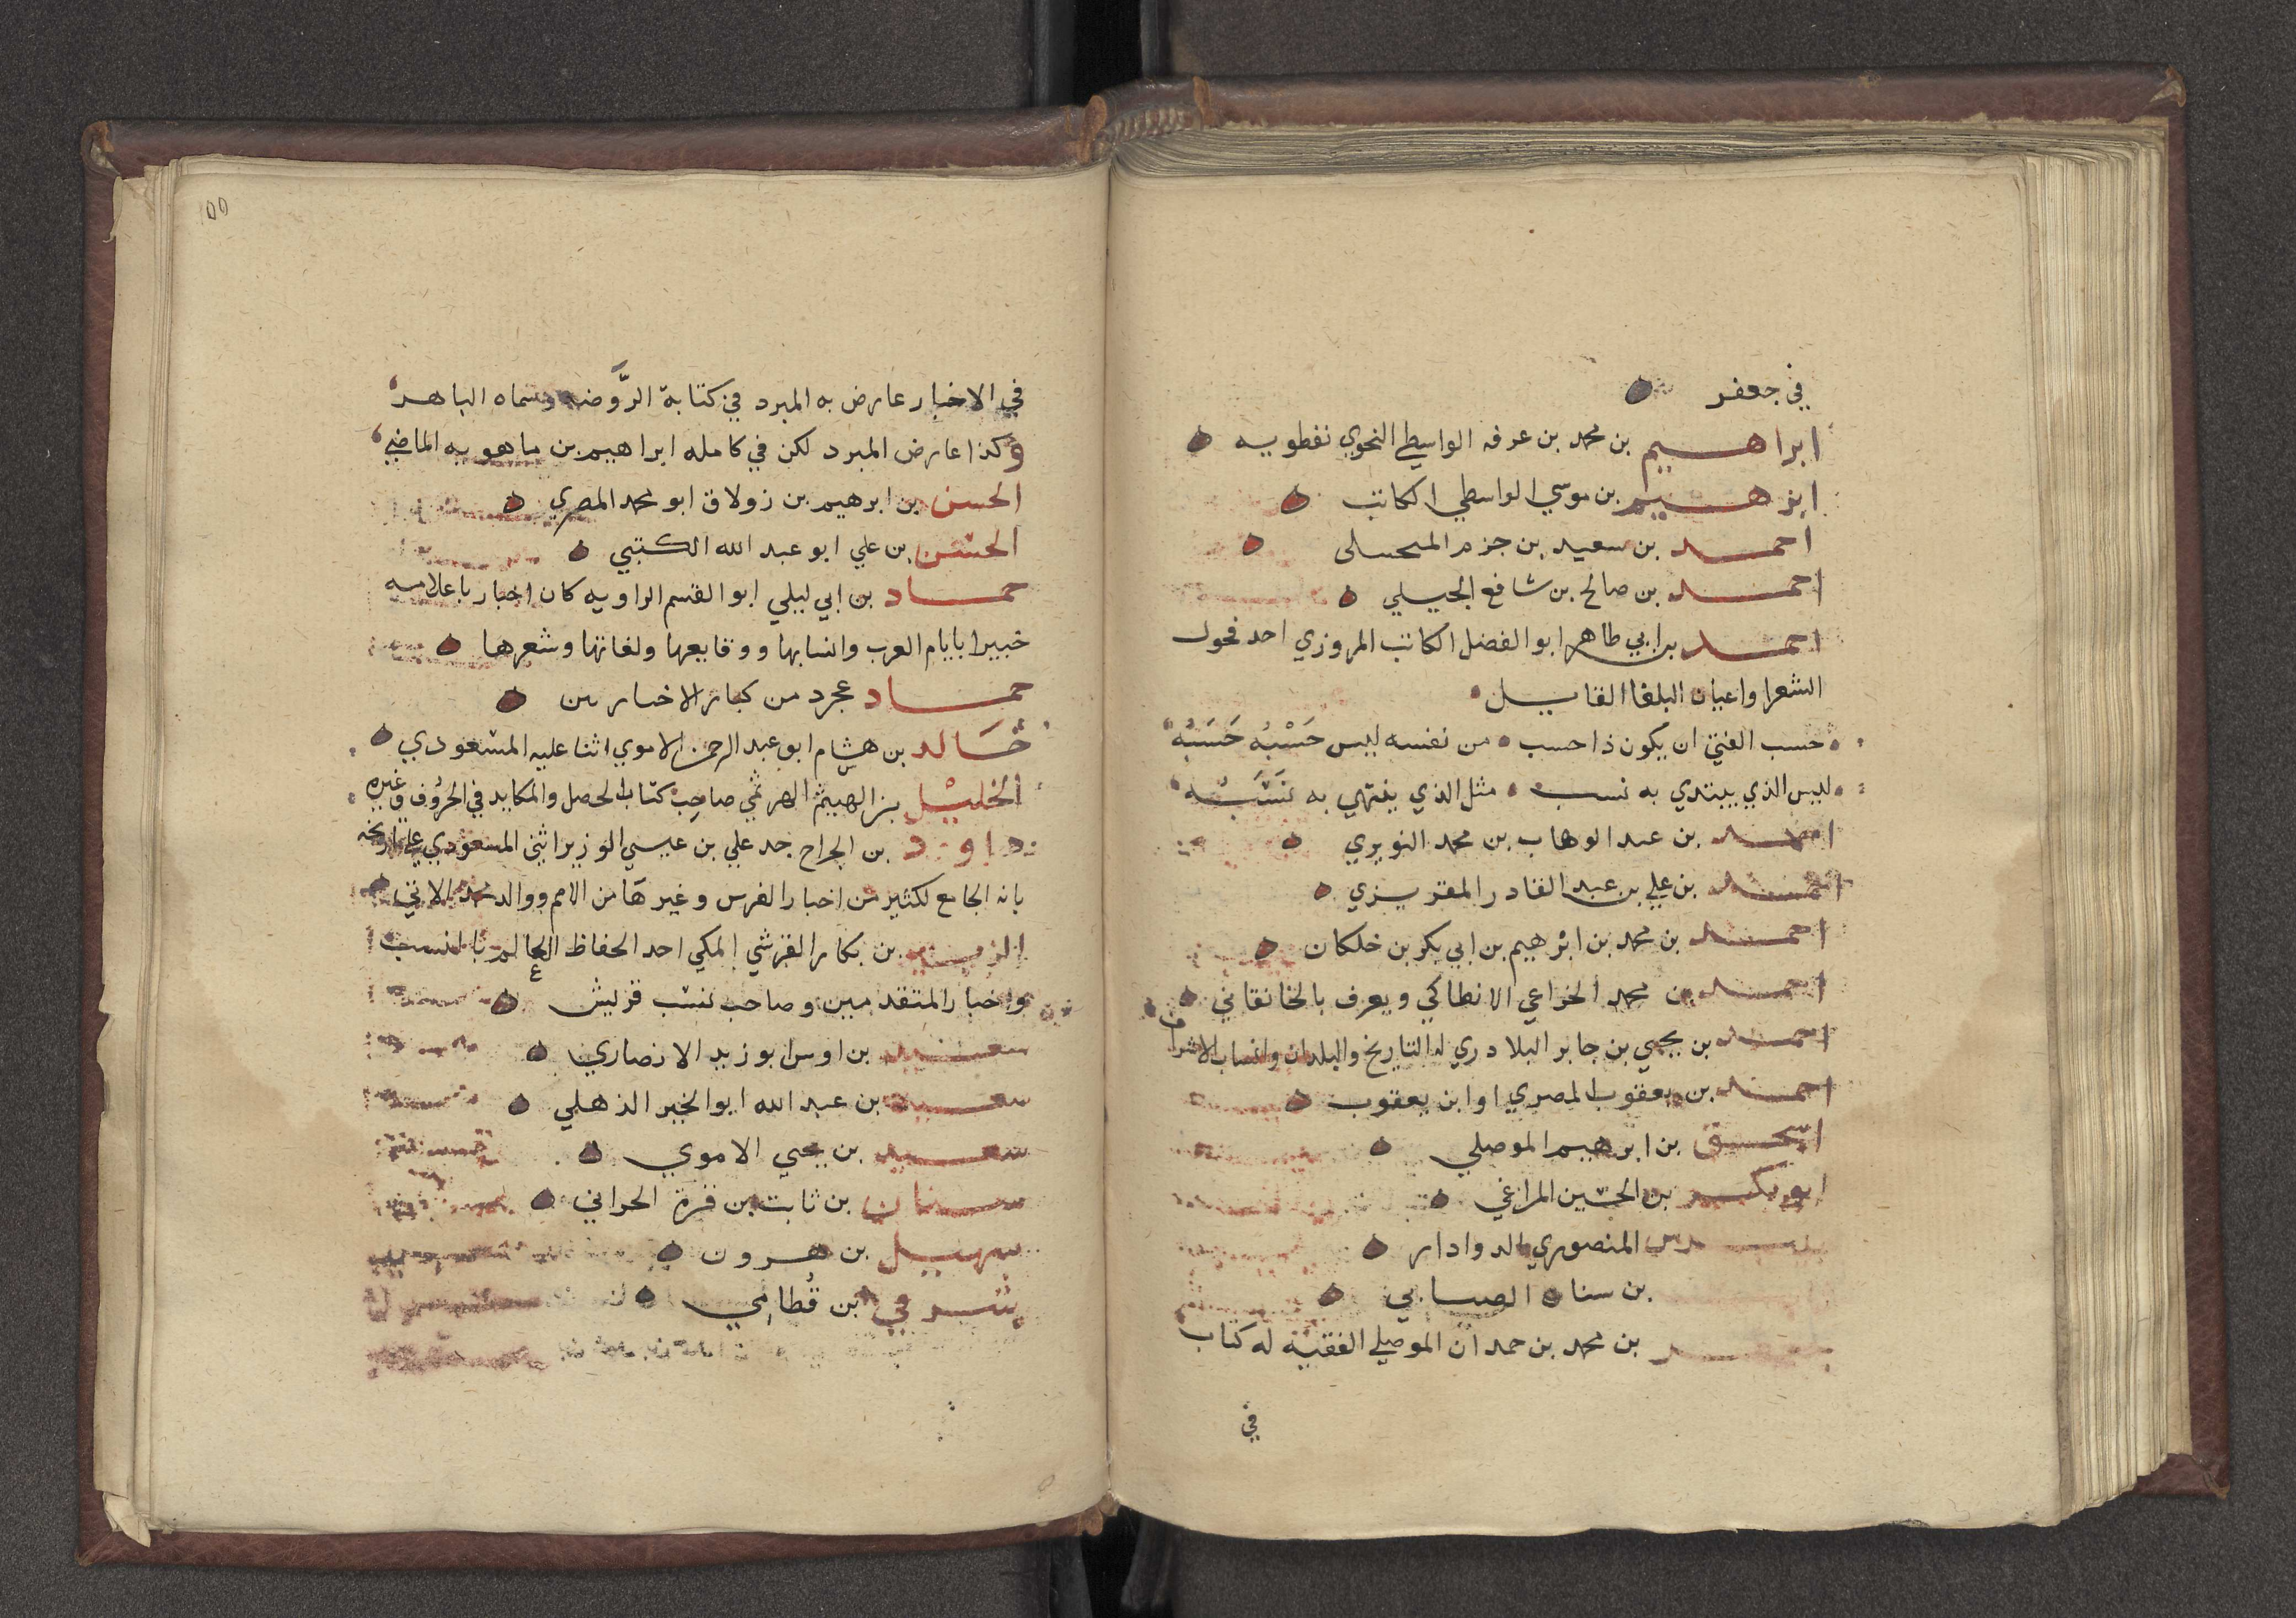 في جعفر
ابراهيم بن محمد بن عرفه الواسطي النحوي نفطويه
ابرهيم بن موسي الواسطي الكاتب
احمد بن سعيد بن حزم
احمد بن صالح بن شافع الجيلي
احمد بن ابي طاهر ابو الفضل الكاتب المروزي احد فحول
الشعرا واعيان البلغا القايل
حسب الفتي ان يكون ذا حسب من نفسه ليس حَسْبُهُ حَسَبُهْ
ليس الذي يبتدي به نسب مثل الذي ينتهي به نَسَبُه
احمد بن عبد الوهاب بن محمد النويري
احمد بن علي بن عبد القادر المقريزي
احمد بن محمد بن ابرهيم بن ابي بكر بن خلكان
احمد بن محمد الخزاعي الانطاكي ويعرف بالخانقاني
احمد بن يحيي بن جابر البلادري له التاريخ والبلدان وانساب الاشراف
احمد بن يعقوب المصري او ابن يعقوب
اسحق بن ابرهيم الموصلي
ابو بكر بن الحسين المراغي
المنصوري الدوادار
بن سنان الصابي
بن محمد بن حمدان الموصلي الفقيه له كتاب
في
١٥٥
في الاخبار عارض به المبرد في كتابة الرَّوضه وسماه الباهر
وكذا عارض المبرد لكن في كامله ابراهيم بن ماهويه الماضي
الحسن بن ابرهيم بن زولاق ابو محمد المصري
الحسين بن علي ابو عبد الله الكتبي
حماد بن ابي ليلي ابو القسم الراويه كان اخباريا علامه
خبيرا بايام العرب وانسابها ووقايعها ولغاتها وشعرها
حماد عجرد من كبار الاخباريين
خَالد بن هشام ابو عبد الرحمن الاموي اثنا عليه المسعودي
الخليل بن الهيثم الهرثمي صاحب كتاب الحيل والمكايد في الحروف وغيره
داود بن الجراح جد علي بن عيسي الوزير اثني المسعودي علي تاريخه
بانه الجامع لكثير من اخبار الفرس وغيرها من الامم ووالد محمد الاتي
الزبير بن بكار القرشي المكي احد الحفاظ العالم بالنسب
واخبار المتقدمين وصاحب نسب قريش
سعيد بن اوس ابو زيد الانصاري
سعيد بن عبد الله ابو الخير الذهلي
سعيد بن يحيي الاموي
سنان بن ثابت بن قرة الحراني
سهيل بن هرون
شرقي بن قُطامي